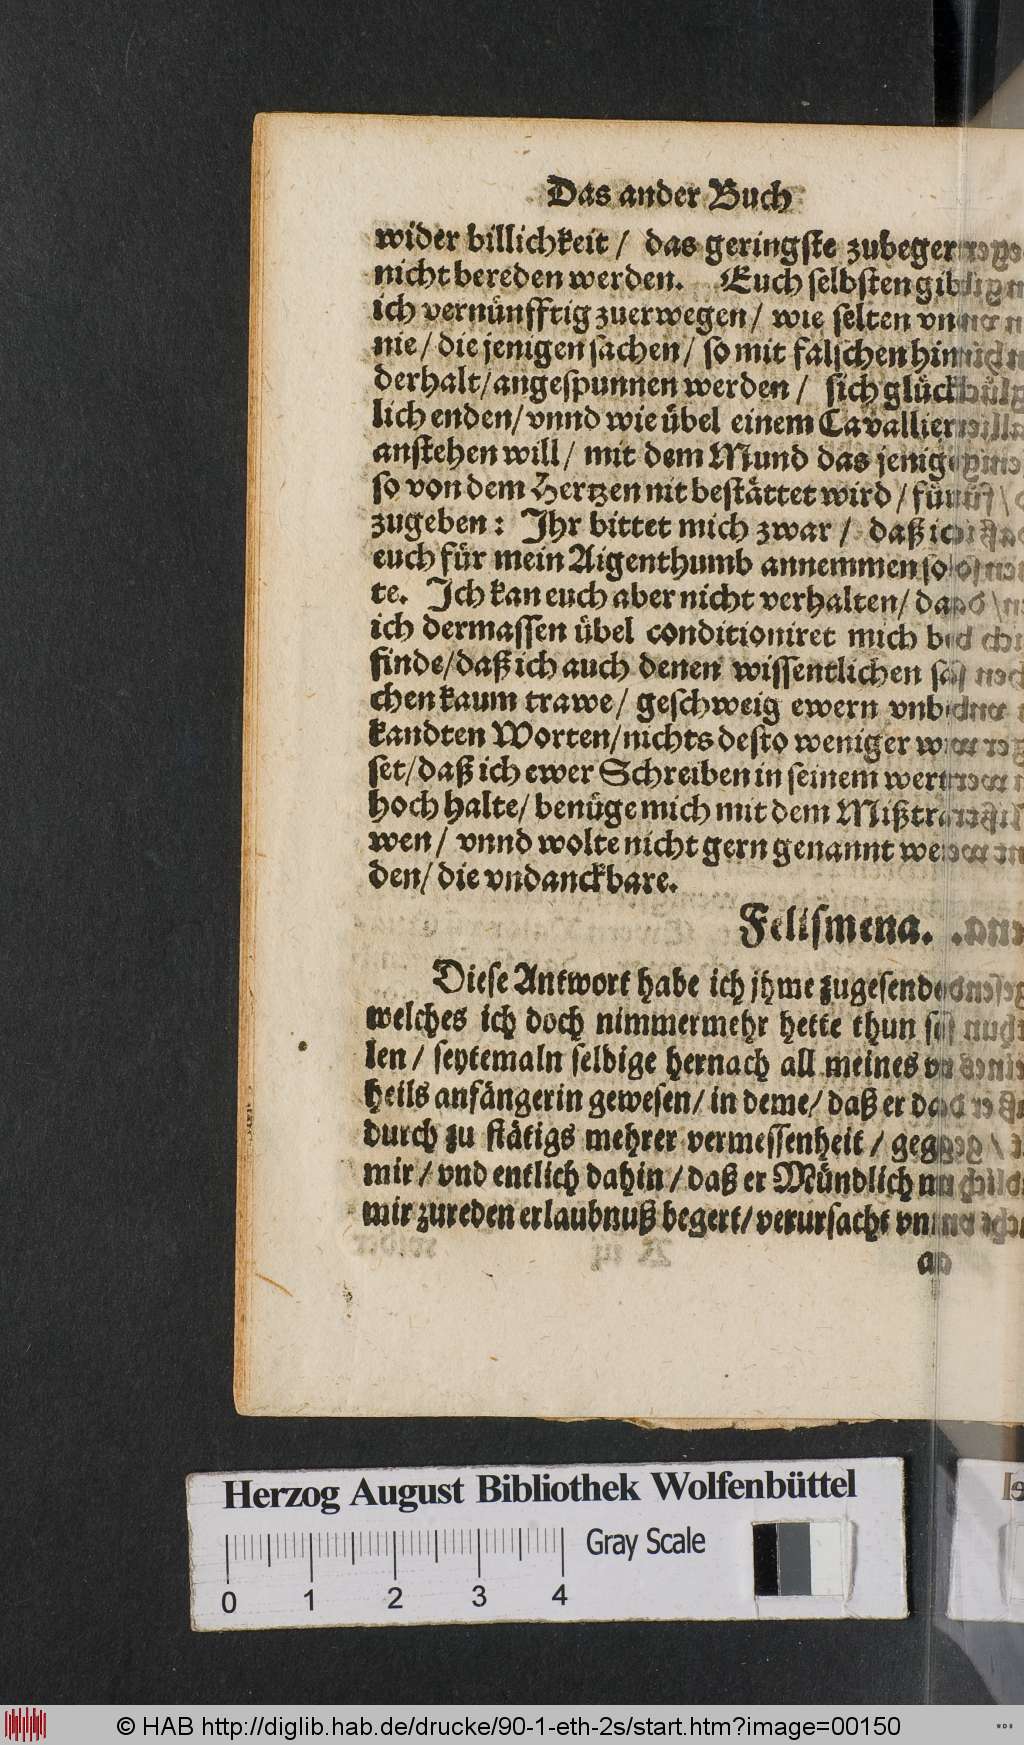 Das ander Buch
wider billichkeit / das geringste zubeger
nicht bereden werden. Euch selbsten gib
ich vernünfftig zuerwegen / wie selten vn
nie / die jenigen sachen / so mit falschen hin
derhalt / angespunnen werden / sich glück
lich enden / vnnd wie übel einem Cavallier
anstehen will / mit dem Mund das jenig
so von dem Hertzen nit bestättet wird / für
zugeben : Ihr bittet mich zwar / daß ich
euch für mein Aigenthumb annemmen sol
te. Ich kan euch aber nicht verhalten / da
ich dermassen übel conditioniret mich be
finde / daß ich auch denen wissentlichen sa
chen kaum trawe / geschweig ewern vnbe
kandten Worten / nichts desto weniger wi
set / daß ich ewer Schreiben in seinem wert
hoch halte / benüge mich mit dem Mißtra
wen / vnnd wolte nicht gern genannt wer
den / die vndanckbare.
Felismena.
Diese Antwort habe ich jhme zugesend
welches ich doch nimmermehr hette thun sol
len / seytemaln selbige hernach all meines vn
heils anfängerin gewesen / in deme / daß er da
durch zu stätigs mehrer vermessenheit / gege
mir / vnd entlich dahin / daß er Mündlich mi
mir zureden erlaubnuß begert / verursacht vn
Herzog August Bibliothek Wolfenbüttel
Gray Scale
0 1 2 3 4
© HAB http://diglib.hab.de/drucke/90-1-eth-2s/start.htm?image=00150